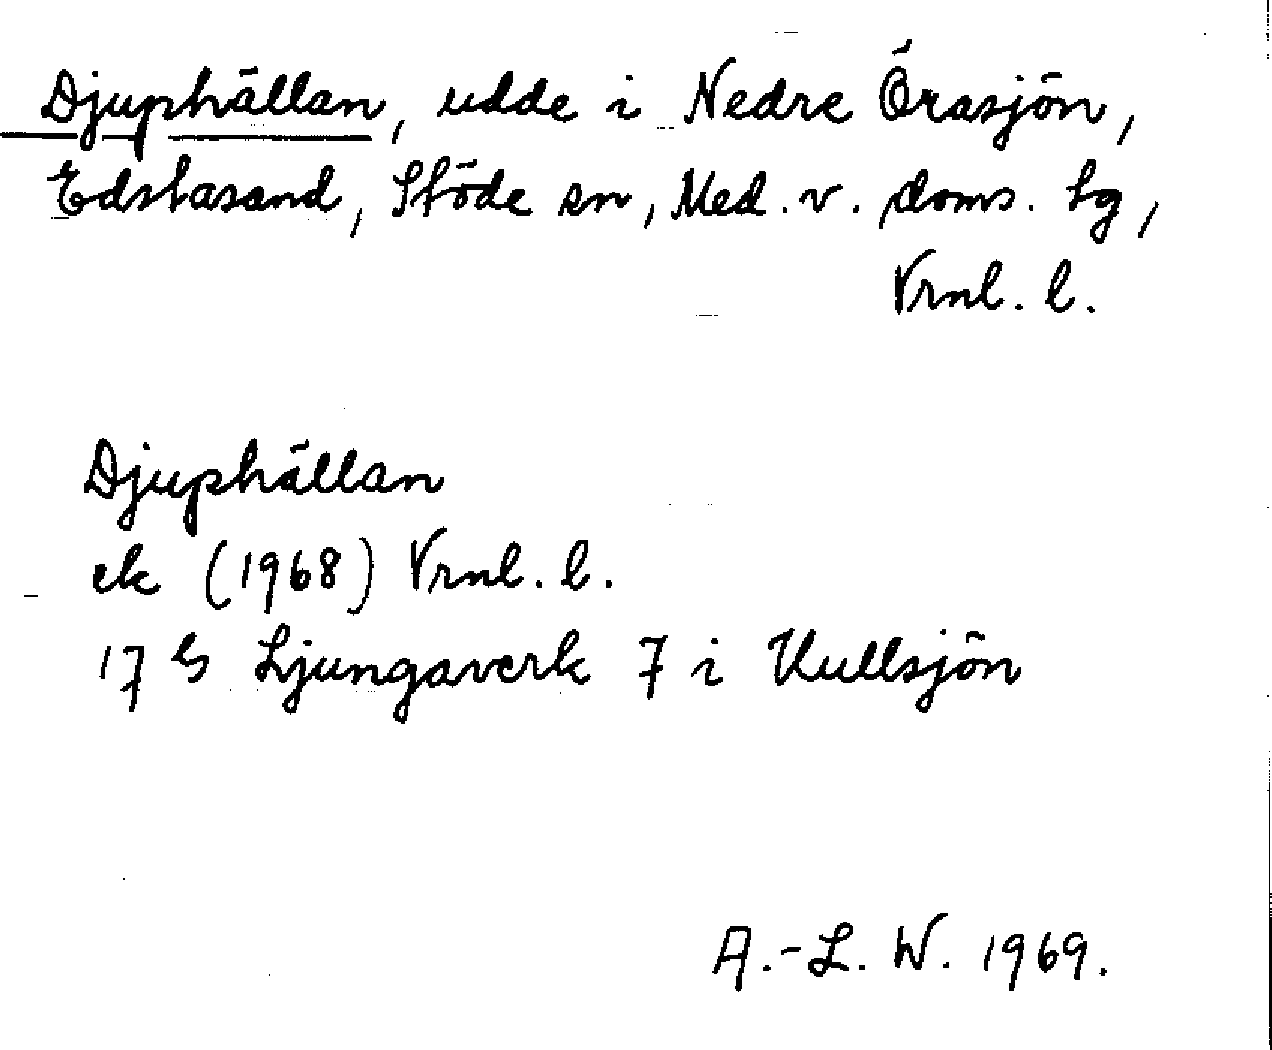 Djuphällan, udde i Nedre Örasjön,
Edstasand, Stöde sn, Med. v. doms. tg,
Vrnl. l.
Djuphällan
ek (1968) Vrnl. l.
17 G Ljungaverk 7 i Kullsjön
A.-L. W. 1969.